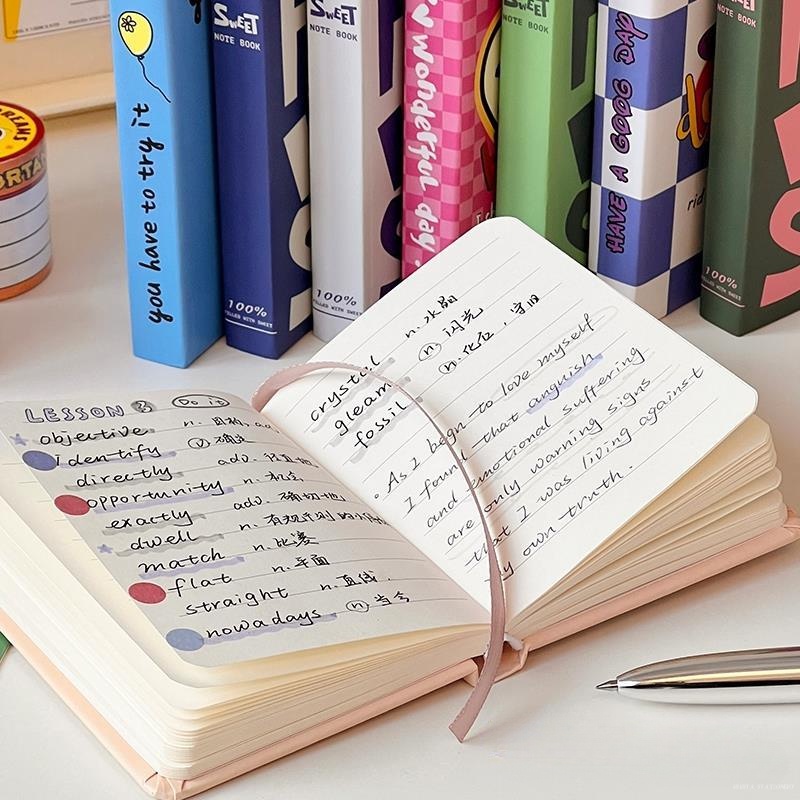 you have to try it
SWEET
NOTE BOOK
100%
FILLED WITH SWEET
SWEET
NOTE BOOK
100%
FILLED WITH SWEET
wonderful day.
SWEET
NOTE BOOK
HAVE A GOOG DAP
NOTE BOOK
100%
FILLED WITH SWEET
LESSON 3 Do it
objective n. 目标,
identify ⓥ 确定
directly adv.
opportunity n. 机会
exactly adv. 确切地
dwell n.
match n. 比赛
flat n. 平面
straight n. 直线.
nowadays ⓝ 当今
crystal n. 水晶
gleam ⓝ 闪光
fossil n. 化石, 守旧
As I begin to love myself
I found that anguish
and emotional suffering
are only warning signs
that I was living against
my own truth.